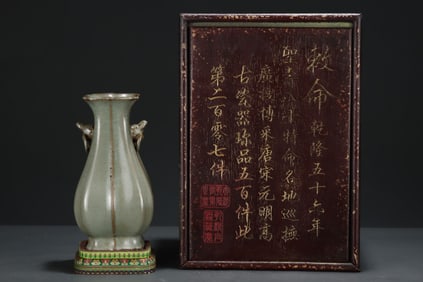 敕命乾隆五十六年
聖旨
特命各地巡撫
廣搜博采唐宋元明高
古瓷器珍品五百件此
第二百零七件